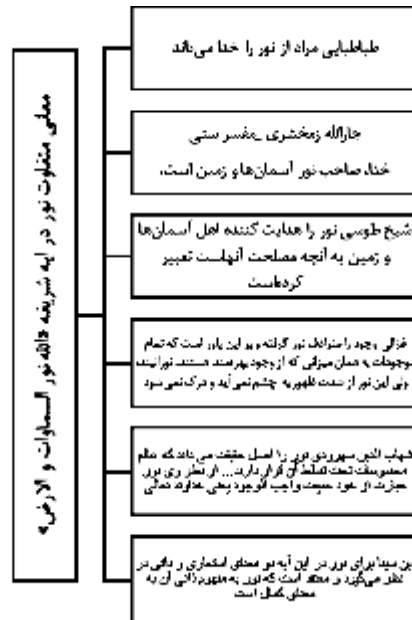 معانی متفاوت نور در آیه شریفه «الله نور السماوات و الارض»
طباطبایی مراد از نور را خدا می‌داند
جارالله زمخشری _مفسر سنی
خدا، صاحب نور آسمان‌ها و زمین است.
شیخ طوسی نور را هدایت کننده اهل آسمان‌ها
و زمین به آنچه مصلحت آنهاست تعبیر
کرده‌است
غزالی وجود را مترادف نور گرفته و بر این باور است که تمام
موجودات به همان میزانی که از وجود بهره‌مند هستند، نورانیند
ولی این نور از شدت ظهور به چشم نمی آید و درک نمی شود
شهاب الدین سهروردی نور را اصل حقیقت می‌داند که عالم
محسوسات تحت تسلط آن قرار دارند... از نظر وی نور
عبارت از خود حقیقت واجب الوجود یعنی خداوند تعالی
ابن سینا برای نور در این آیه دو معنای استعاری و ذاتی در
نظر می‌گیرد و معتقد است که نور به مفهوم ذاتی آن به
معنای کمال است